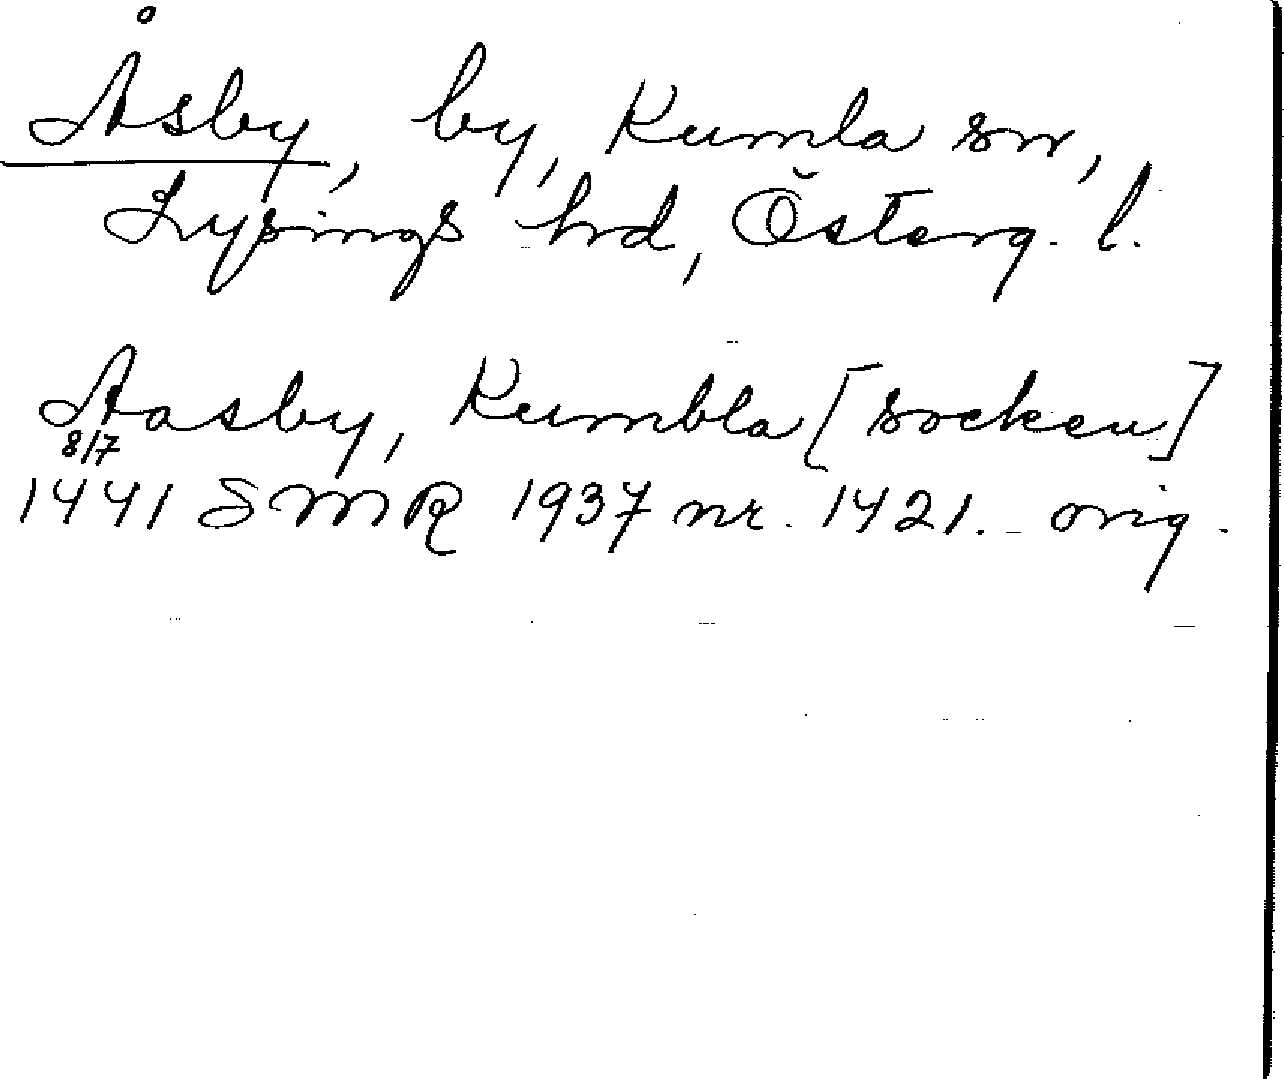 Åsby, by, Kumla sn,
Lysings hd, Österg. l.
Aasby, Kumbla [socken]
8/7
1441 SMR 1937 nr. 1421. orig.